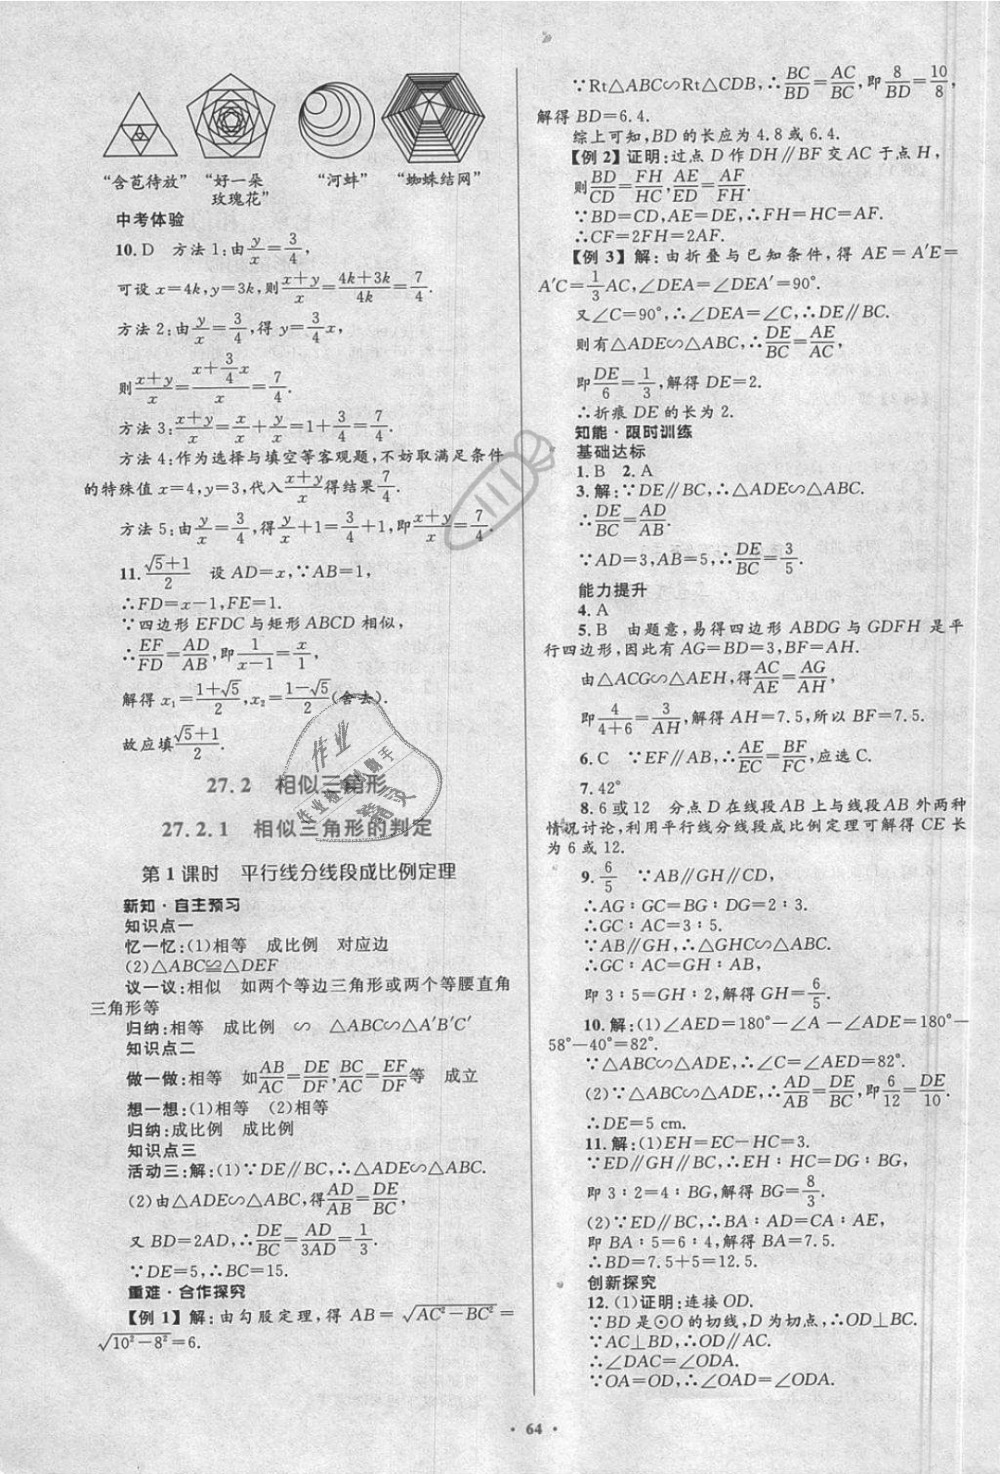 “含苞待放” “好一朵 “河蚌” “蜘蛛结网”
玫瑰花”
中考体验
10. D 方法1:由y/x=3/4,
可设x=4k,y=3k,则(x+y)/x=(4k+3k)/4k=7/4.
方法2:由y/x=3/4,得y=3/4x,
则(x+y)/x=(x+3/4x)/x=7/4.
方法3:(x+y)/x=x/x+y/x=1+3/4=7/4.
方法4:作为选择与填空等客观题,不妨取满足条件
的特殊值x=4,y=3,代入(x+y)/x得结果7/4.
方法5:由y/x=3/4,得y/x+1=3/4+1,即(x+y)/x=7/4.
11. (√5+1)/2 设AD=x,∵AB=1,
∴FD=x-1,FE=1.
∵四边形EFDC与矩形ABCD相似,
∴EF/FD=AD/AB,即1/(x-1)=x/1,
解得x₁=(1+√5)/2,x₂=(1-√5)/2(舍去).
故应填(√5+1)/2.
27.2 相似三角形
27.2.1 相似三角形的判定
第1课时 平行线分线段成比例定理
新知·自主预习
知识点一
忆一忆:(1)相等 成比例 对应边
(2)△ABC≌△DEF
议一议:相似 如两个等边三角形或两个等腰直角
三角形等
归纳:相等 成比例 ∽ △ABC∽△A′B′C′
知识点二
做一做:相等 如AB/AC=DE/DF,BC/AC=EF/DF等 成立
想一想:(1)相等 (2)相等
归纳:成比例 成比例
知识点三
活动三:解:(1)∵DE∥BC,∴△ADE∽△ABC.
(2)由△ADE∽△ABC,得AD/AB=DE/BC,
又BD=2AD,∴DE/BC=AD/3AD=1/3.
∵DE=5,∴BC=15.
重难·合作探究
【例1】解:由勾股定理,得AB=√(AC²-BC²)=
√(10²-8²)=6.
∵Rt△ABC∽Rt△CDB,∴BC/BD=AC/BC,即8/BD=10/8,
解得BD=6.4.
综上可知,BD的长应为4.8或6.4.
【例2】证明:过点D作DH∥BF交AC于点H,
则BD/CD=FH/HC,AE/ED=AF/FH.
∵BD=CD,AE=DE,∴FH=HC=AF.
∴CF=2FH=2AF.
【例3】解:由折叠与已知条件,得AE=A′E=
A′C=1/3AC,∠DEA=∠DEA′=90°.
又∠C=90°,∴∠DEA=∠C,∴DE∥BC.
则有△ADE∽△ABC,∴DE/BC=AE/AC,
即DE/6=1/3,解得DE=2.
∴折痕DE的长为2.
知能·限时训练
基础达标
1. B 2. A
3. 解:∵DE∥BC,∴△ADE∽△ABC.
∴DE/BC=AD/AB.
∵AD=3,AB=5,∴DE/BC=3/5.
能力提升
4. A
5. B 由题意,易得四边形ABDG与GDFH是平
行四边形,因此有AG=BD=3,BF=AH.
由△ACG∽△AEH,得AC/AE=AG/AH,
即4/(4+6)=3/AH,解得AH=7.5,所以BF=7.5.
6. C ∵EF∥AB,∴AE/EC=BF/FC,应选C.
7. 42°
8. 6或12 分点D在线段AB上与线段AB外两种
情况讨论,利用平行线分线段成比例定理可解得CE长
为6或12.
9. 6/5 ∵AB∥GH∥CD,
∴AG∶GC=BG∶DG=2∶3.
∴GC∶AC=3∶5.
∵AB∥GH,∴△GHC∽△ABC.
∴GC∶AC=GH∶AB,
即3∶5=GH∶2,解得GH=6/5.
10. 解:(1)∠AED=180°-∠A-∠ADE=180°-
58°-40°=82°.
∵△ABC∽△ADE,∴∠C=∠AED=82°.
(2)∵△ABC∽△ADE,∴AD/AB=DE/BC,即6/12=DE/10.
∴DE=5 cm.
11. 解:(1)EH=EC-HC=3.
∵ED∥GH∥BC,∴EH∶HC=DG∶BG,
即3∶2=4∶BG,解得BG=8/3.
(2)∵ED∥BC,∴BA∶AD=CA∶AE,
即BA∶5=6∶4,解得BA=7.5.
∴BD=7.5+5=12.5.
创新探究
12. (1)证明:连接OD.
∵BD是⊙O的切线,D为切点,∴OD⊥BC.
∵AC⊥BD,∴OD∥AC.
∴∠DAC=∠ODA.
∵OA=OD,∴∠OAD=∠ODA.
· 64 ·